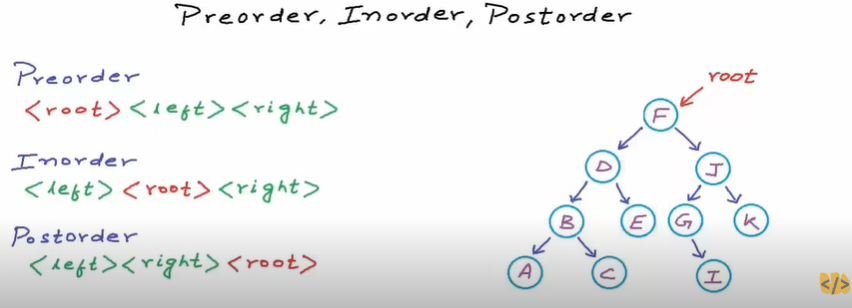 Preorder, Inorder, Postorder
Preorder
<root><left><right>
Inorder
<left><root><right>
Postorder
<left><right><root>
root
F
D
J
B
E
G
K
A
C
I
</>